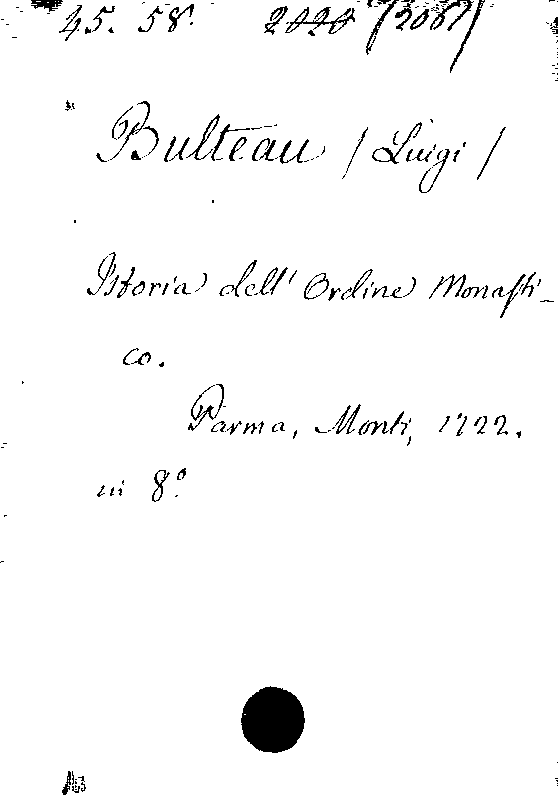 45. 58. 2020 (2067)
Bulteau / Luigi /
Istoria dell' Ordine Monasti-
co.
Parma, Monti, 1722.
in 8º